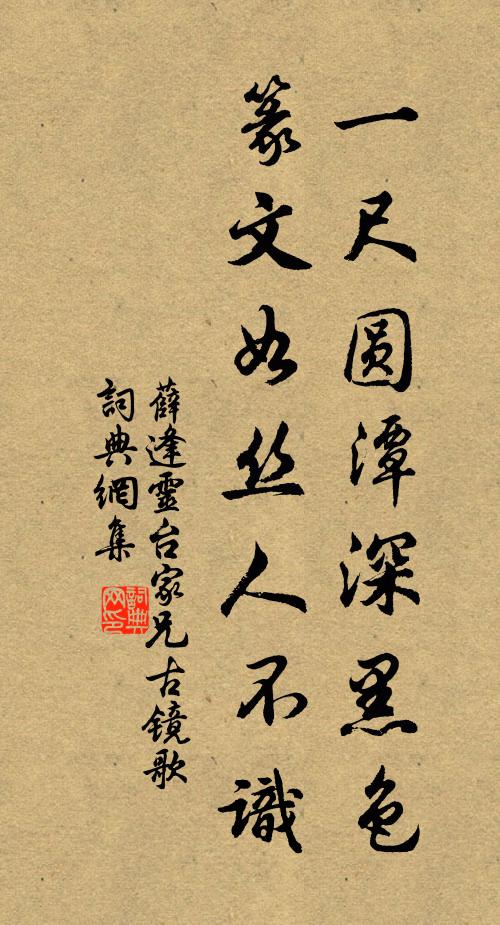 一尺圆潭深黑色
篆文如丝人不識
薛逢靈台家兄古镜歌
詞典網集
詞典
网印